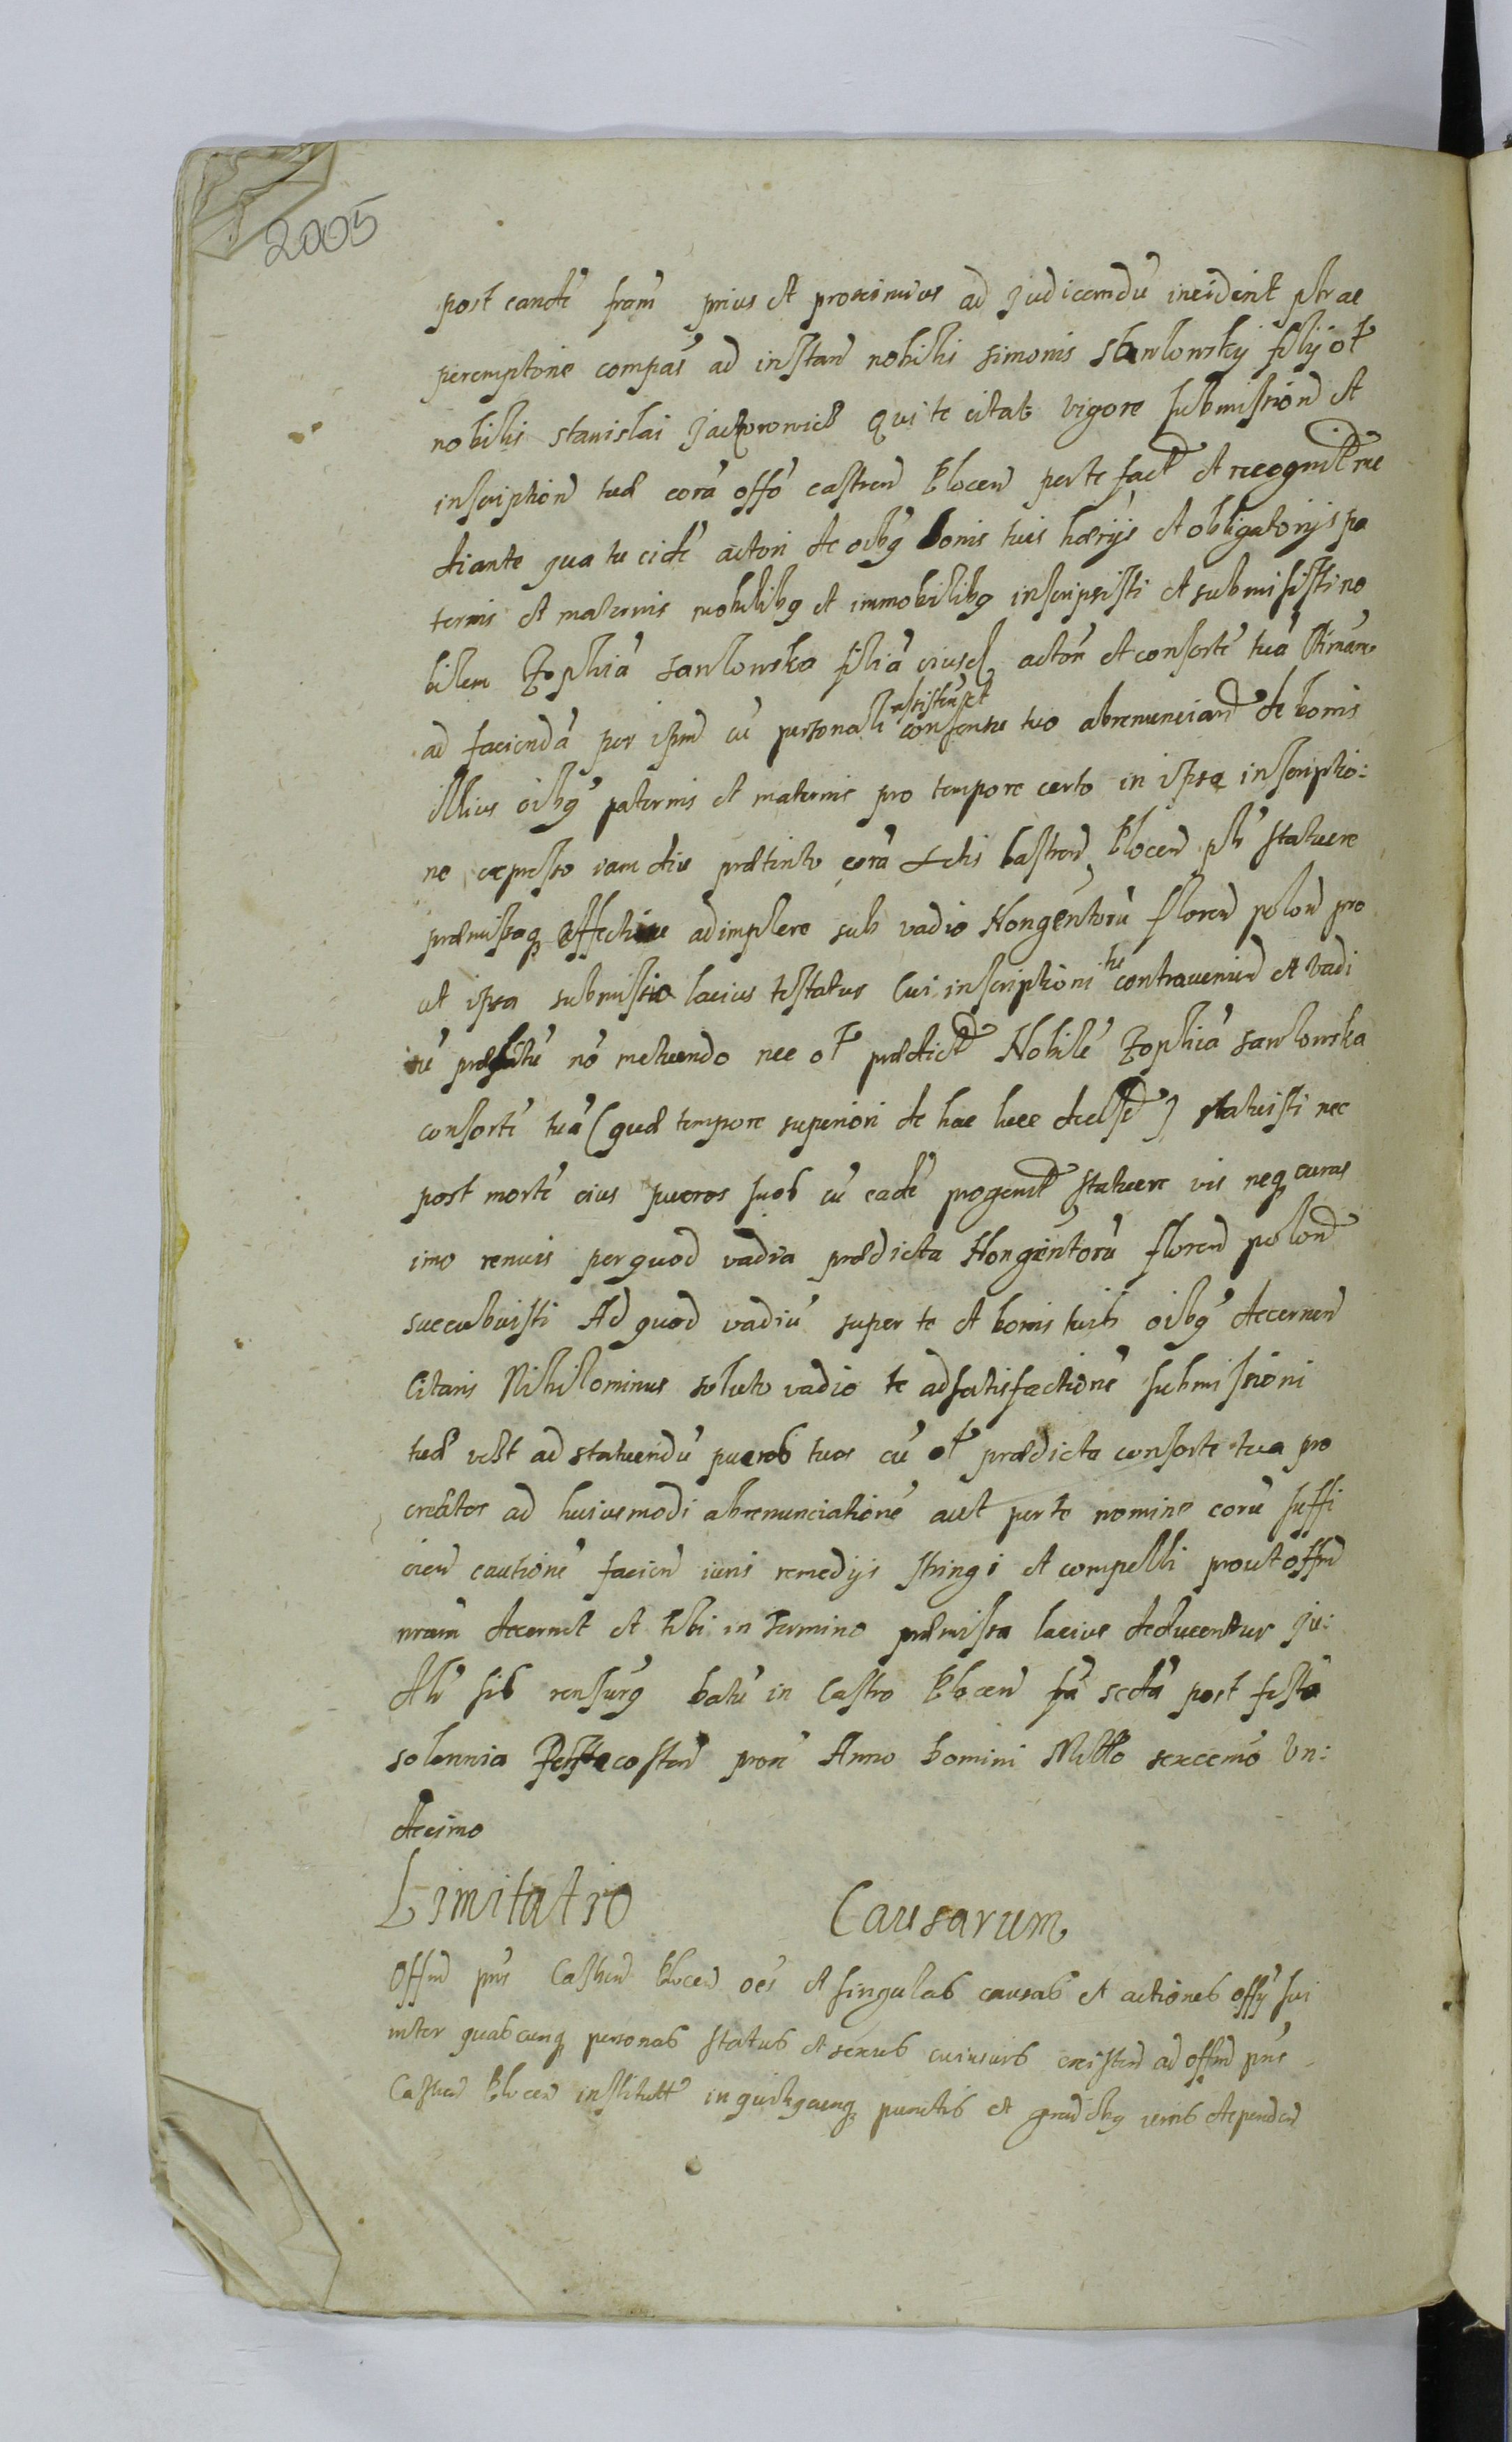 2005
post eandē fram prius et proximius ad Judicandū inciderit ptrae
peremptorie compas ad instan nobilis Simonis Sawlowsky filij ol
nobilis Stanislai Jaczorowicz qui te citat vigore submission et
inscription tuæ corā offo castren Plocen per te fact et recognit me
diante qua tu eidē actori de oibq bonis tuis hærijs et obligatorijs pa
ternis et maternis mobilibq et immobilibq inscripsisti et submisisti no
bilem Zophiā Sawlowska filiā eiusd actori et consortē tuā
ad faciendā per ipm cū personali assisten et consensu tuo abrenunciand de bonis
illius oibq paternis et maternis pro tempore certo in ipsa inscriptio:
ne expresso iam diu præterito corā Actis Castren Plocen ptr statuere
præmissaq effective adimplere sub vadio Nongentorū floren polon pro
ut ipsa submissio lacius testatur Cui inscriptioni tu contraveniend et vadi
ū præfatū nō metuendo nec ol prædict Nobilē Zophiā Sawlowska
consortē tuā (quæ tempore superiori de hac luce decess) statuisti nec
post mortē eius pueros suos cū eadē progenit statuere vis neq curas
imo renuis per quod vadia prædicta Nongentorū floren polon
succubuisti Ad quod vadiū super te et bonis tuis oibq decernen
Citaris Nihilominus soluto vadio te ad satisfactionē submissioni
tuæ vclt ad statuendū pueros tuos cū ol prædicta consorte tua pro
creatos ad huiusmodi abrenunciationē aut per te nomine eorū suffi
cien cautionē facien iuris remedijs stringi et compelli prout offm
nram decernet et tibi in termino præmissa lacius deducentur Ju:
sis rensurq Datū in Castro Plocen fa scda post festa
solennia Pentecosten proxē Anno Domini Millo sexcemo Vn:
decimo
Limitatio Causarum
Offm pns Castren Plocen oēs et singulas causas et actiones offy sui
inter quascunq personas status et sexus cuiusvis existen ad offm pns
Castren Plocen institut in quibuscunq punctis et gradibq iuris dependen